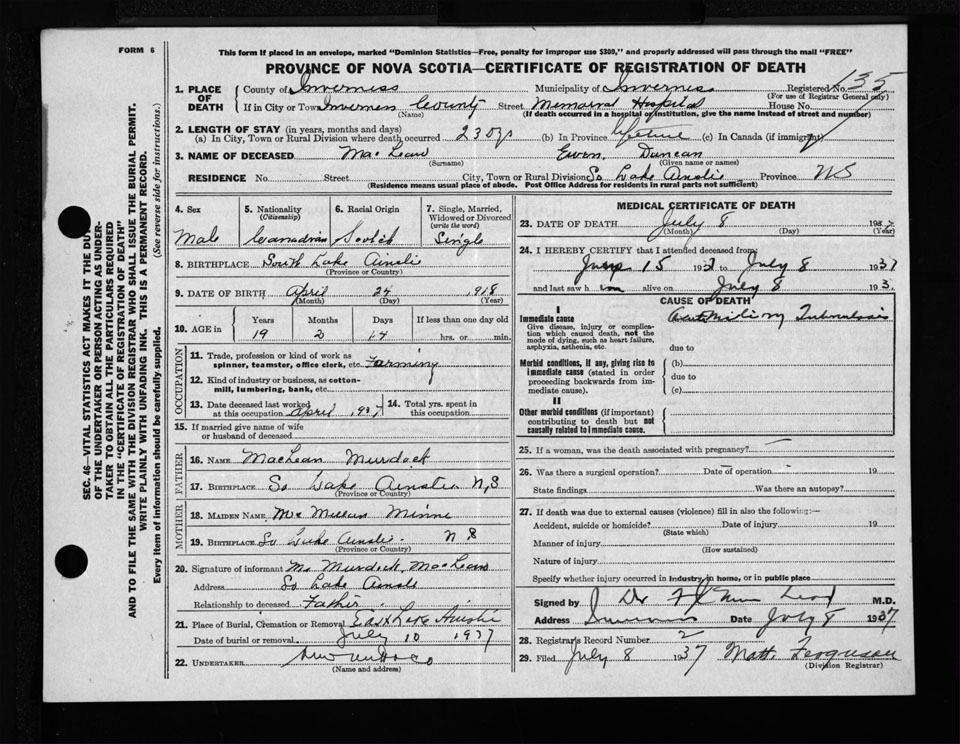 FORM 6
This form if placed in an envelope, marked "Dominion Statistics—Free, penalty for improper use $300," and properly addressed will pass through the mail "FREE"
PROVINCE OF NOVA SCOTIA—CERTIFICATE OF REGISTRATION OF DEATH
1. PLACE OF DEATH County of Inverness Municipality of Inverness Registered No. 135
(For use of Registrar General only)
If in City or Town Inverness County Street Memorial Hospital House No.
(Name) (If death occurred in a hospital or institution, give the name instead of street and number)
2. LENGTH OF STAY (in years, months and days)
(a) In City, Town or Rural Division where death occurred 23 dys (b) In Province lifetime (c) In Canada (if immigrant)
3. NAME OF DECEASED MacLean Ewen Duncan
(Surname) (Given name or names)
RESIDENCE No. Street City, Town or Rural Division So Lake Ainslie Province NS
(Residence means usual place of abode. Post Office Address for residents in rural parts not sufficient)
4. Sex
Male
5. Nationality
(Citizenship)
Canadian
6. Racial Origin
Scotch
7. Single, Married, Widowed or Divorced
(write the word)
Single
8. BIRTHPLACE South Lake Ainslie
(Province or Country)
9. DATE OF BIRTH April 24 918
(Month) (Day) (Year)
10. AGE in Years Months Days If less than one day old
19 2 14 hrs. or min.
OCCUPATION
11. Trade, profession or kind of work as
spinner, teamster, office clerk, etc. Farming
12. Kind of industry or business, as cotton-
mill, lumbering, bank, etc.
13. Date deceased last worked
at this occupation April 1937
14. Total yrs. spent in
this occupation
15. If married give name of wife
or husband of deceased
FATHER
16. NAME MacLean Murdock
17. BIRTHPLACE So Lake Ainslie N,S
(Province or Country)
MOTHER
18. MAIDEN NAME McMillan Minnie
19. BIRTHPLACE So Lake Ainslie. N S
(Province or Country)
20. Signature of informant Murdock MacLean
Address So Lake Ainslie
Relationship to deceased Father
21. Place of Burial, Cremation or Removal East Lake Ainslie
Date of burial or removal July 10 1937
22. UNDERTAKER
(Name and address)
MEDICAL CERTIFICATE OF DEATH
23. DATE OF DEATH July 8 1937
(Month) (Day) (Year)
24. I HEREBY CERTIFY that I attended deceased from
June 15 1937 to July 8 1937
and last saw him alive on July 8 193
CAUSE OF DEATH
I
Immediate cause
Give disease, injury or complica-
tion which caused death, not the
mode of dying, such as heart failure,
asphyxia, asthenia, etc.
Tuberculosis
due to
Morbid conditions, if any, giving rise to
immediate cause (stated in order
proceeding backwards from im-
mediate cause).
(b)
due to
(c)
II
Other morbid conditions (if important)
contributing to death but not
causally related to immediate cause.
25. If a woman, was the death associated with pregnancy?
26. Was there a surgical operation? Date of operation 19
State findings Was there an autopsy?
27. If death was due to external causes (violence) fill in also the following:—
Accident, suicide or homicide? Date of injury 19
(State which)
Manner of injury
(How sustained)
Nature of injury
Specify whether injury occurred in industry, in home, or in public place
Signed by Dr M.D.
Address Inverness Date July 8 1937
28. Registrar's Record Number 2
29. Filed July 8 1937 Matt. Ferguson
(Division Registrar)
SEC. 46—VITAL STATISTICS ACT MAKES IT THE DUTY
OF THE UNDERTAKER OR PERSON ACTING AS UNDER-
TAKER TO OBTAIN ALL THE PARTICULARS REQUIRED
IN THE "CERTIFICATE OF REGISTRATION OF DEATH"
AND TO FILE THE SAME WITH THE DIVISION REGISTRAR WHO SHALL ISSUE THE BURIAL PERMIT.
WRITE PLAINLY WITH UNFADING INK. THIS IS A PERMANENT RECORD.
Every item of information should be carefully supplied. (See reverse side for instructions.)